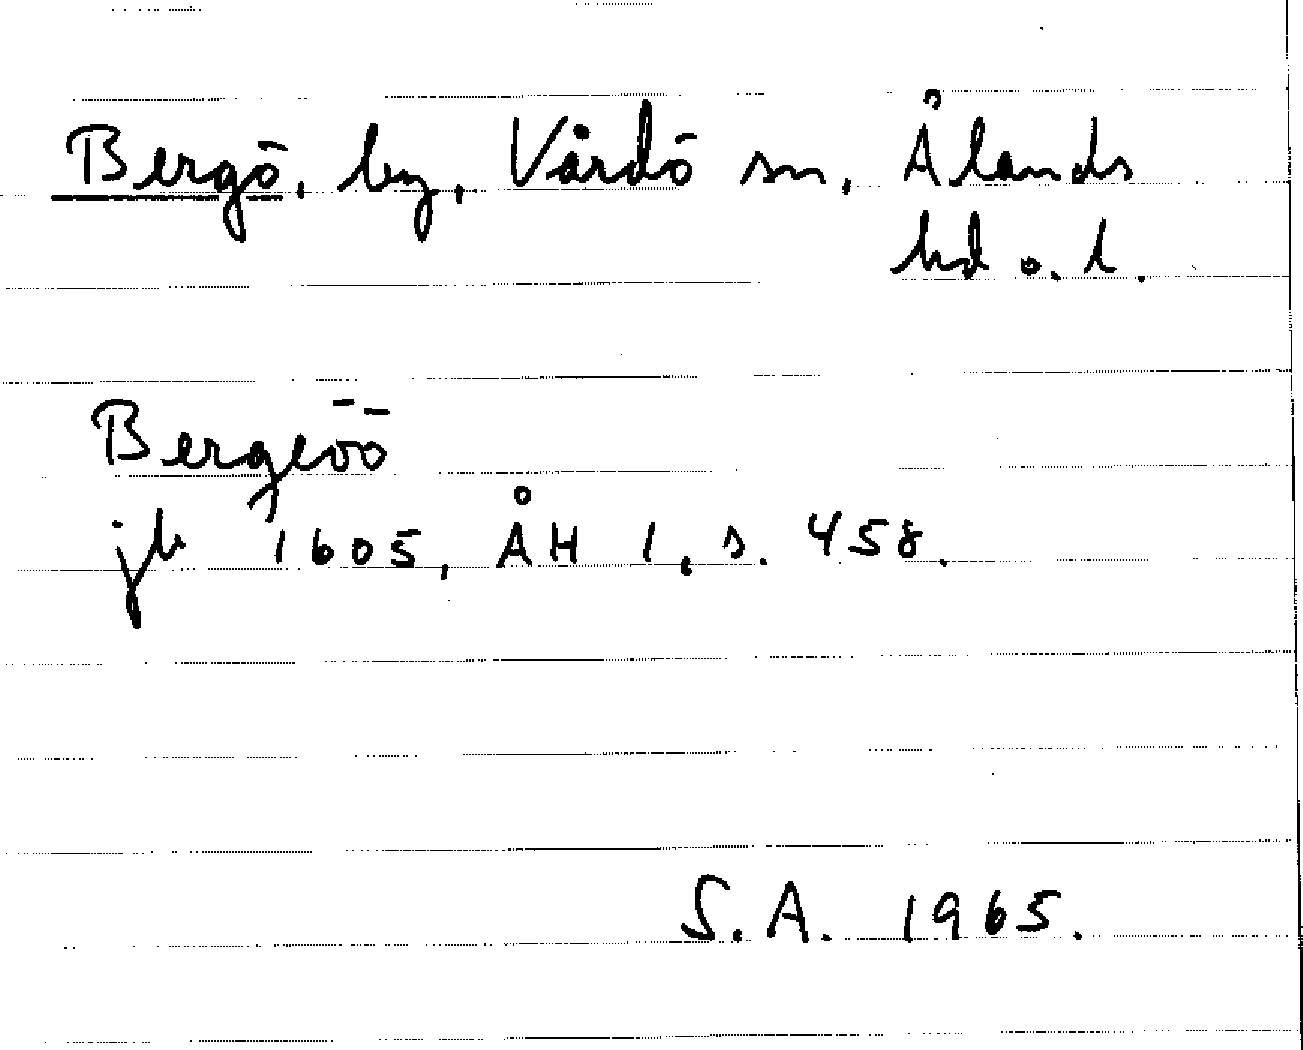 Bergö, by, Vårdö sn, Ålands
hd o. l.
Bergeöö
jb 1605, ÅH 1, s. 458.
S.A. 1965.